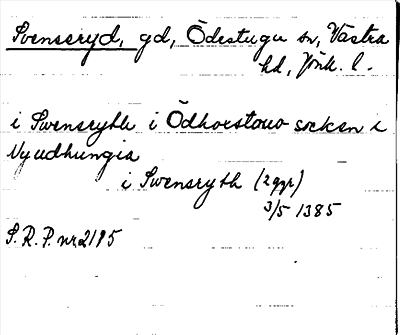 Svenseryd, gd, Ödestugu sn, Västra
hd, Jönk. l.
i Swenserydh i Ödhorstowo socken i
Nyudhungia
i Swensryth (2 ggr)
3/5 1385
S.R.P. nr 2195